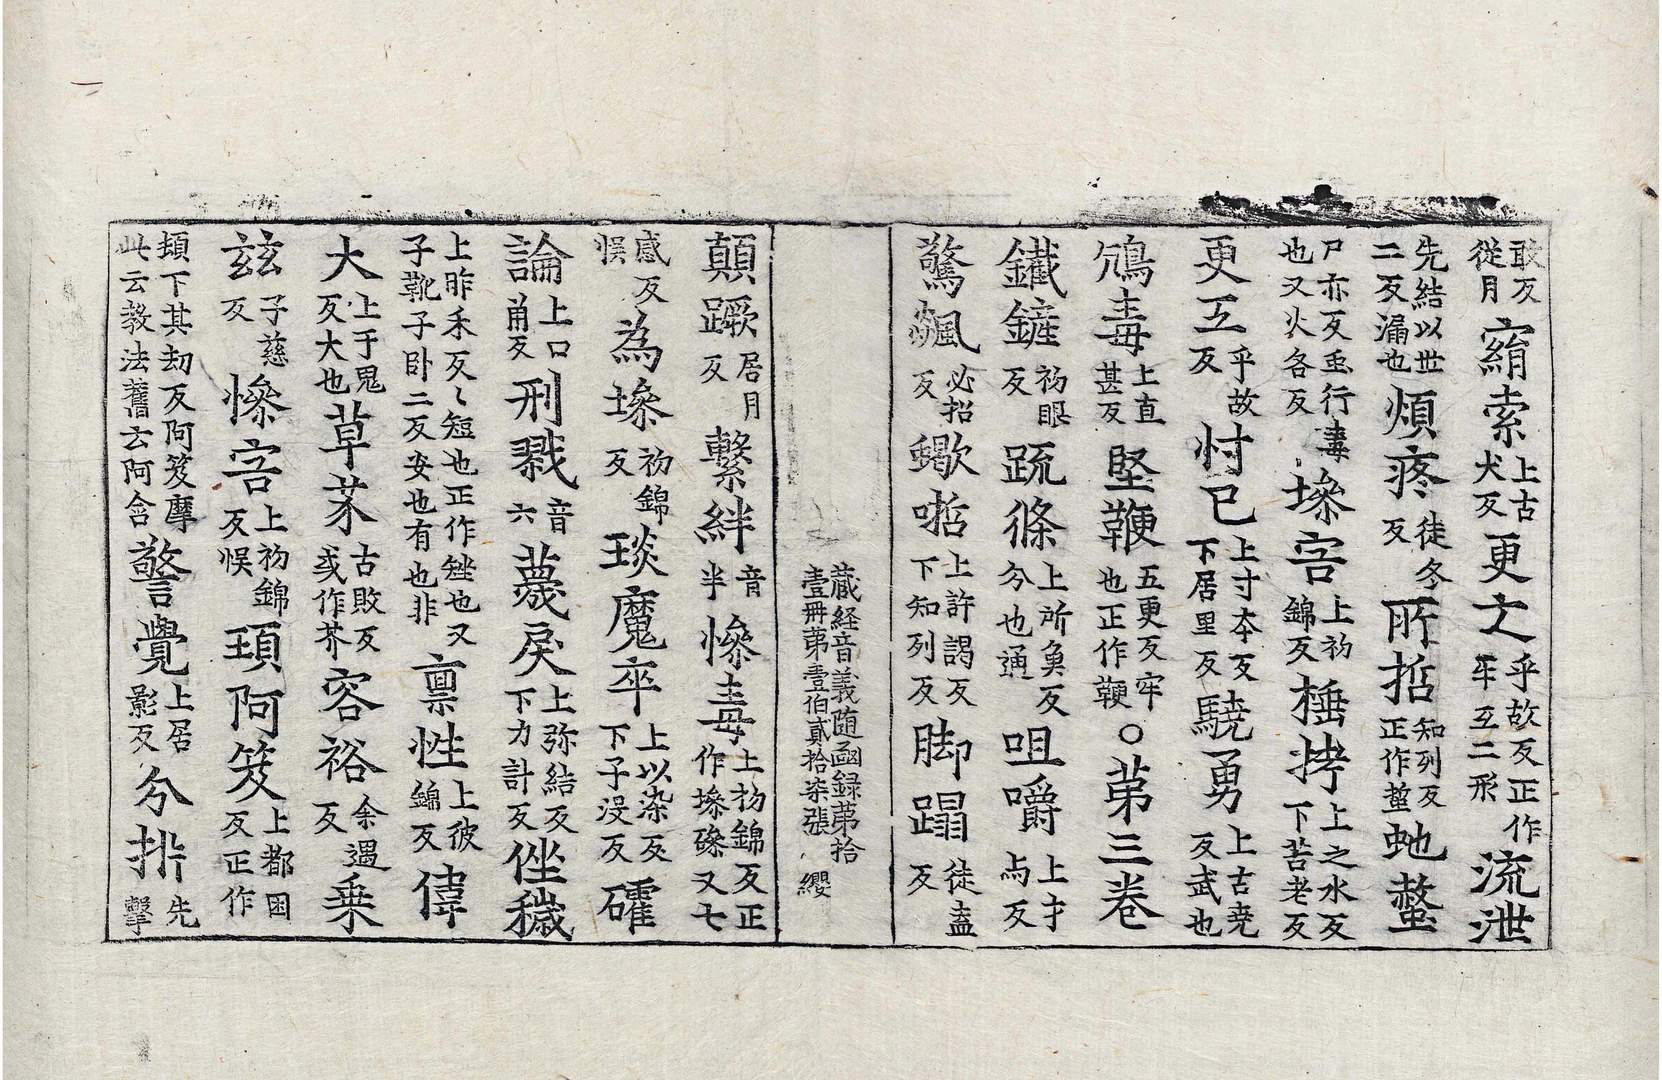 敢反從月 𦊰索上古犬反 更𠄔乎故反正作㸦互二形 流泄
先結以世二反漏也 煩疼徒冬反 所哲知列反正作蜇 虵螫
尸亦反䖝行毒也又火各反 墋害上初錦反 棰拷上之水反下苦老反
更互乎故反 忖已上寸本反下居里反 驍勇上古尭反武也
鴆毒上直甚反 堅鞕五更反牢也正作鞕 ○第三卷
鐵鏟初眼反 䟽條上所魚反分也通 咀嚼上才与反
驚飊必招反 蠍哳上許謁反下知列反 脚蹋徒盍反
藏経音義随函録第拾
壹冊第壹伯貳拾柒張 纓
顛蹶居月反 繫絆音半 慘毒上初錦反正作墋磣又七
感反悮 為墋初錦反 琰魔卒上以染反下子没反 礭
論上口角反 刑戮音六 薎戾上弥結反下力計反 㘸穢
上昨禾反〻短也正作矬也又子靴子卧二反安也有也非 禀性上彼錦反 偉
大上于鬼反大也 草芥古敗反或作芥 容裕余遇反 乗
兹子慈反 慘害上初錦反悮 頭阿笈上都困反正作
頓下其刧反阿笈摩此云教法舊云阿含 警覺上居影反 分析先擊